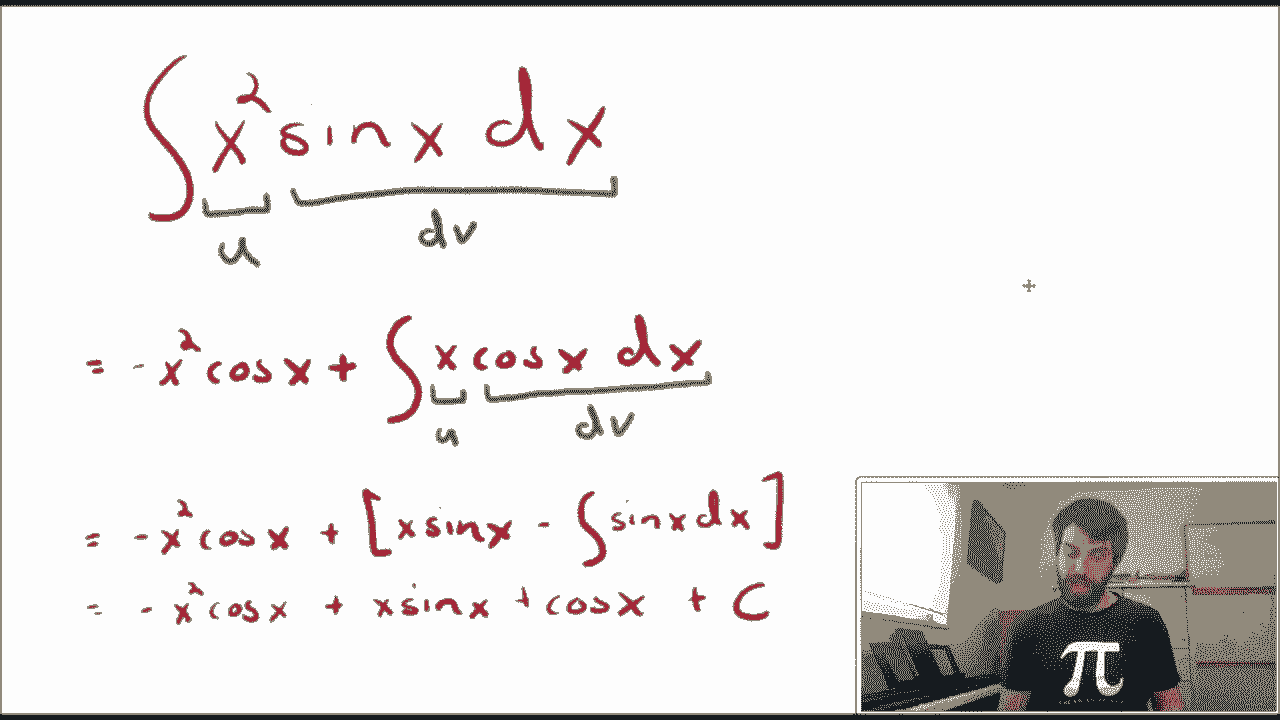 ∫ x² sin x dx
u dv
= -x² cos x + ∫ x cos x dx
u dv
= -x² cos x + [x sin x - ∫ sin x dx]
= -x² cos x + x sin x + cos x + C
π